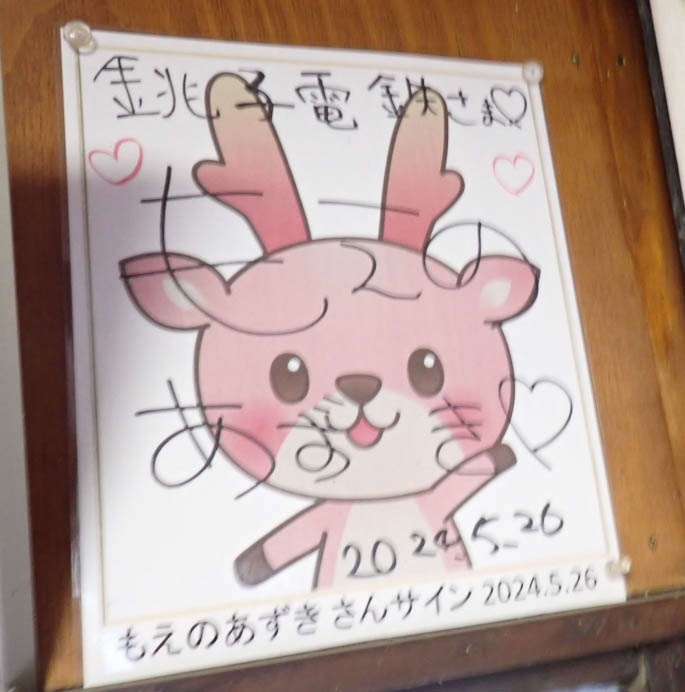 銚子電鉄さま♡
もえの
あずき♡
2024.5.26
もえのあずきさんサイン 2024.5.26